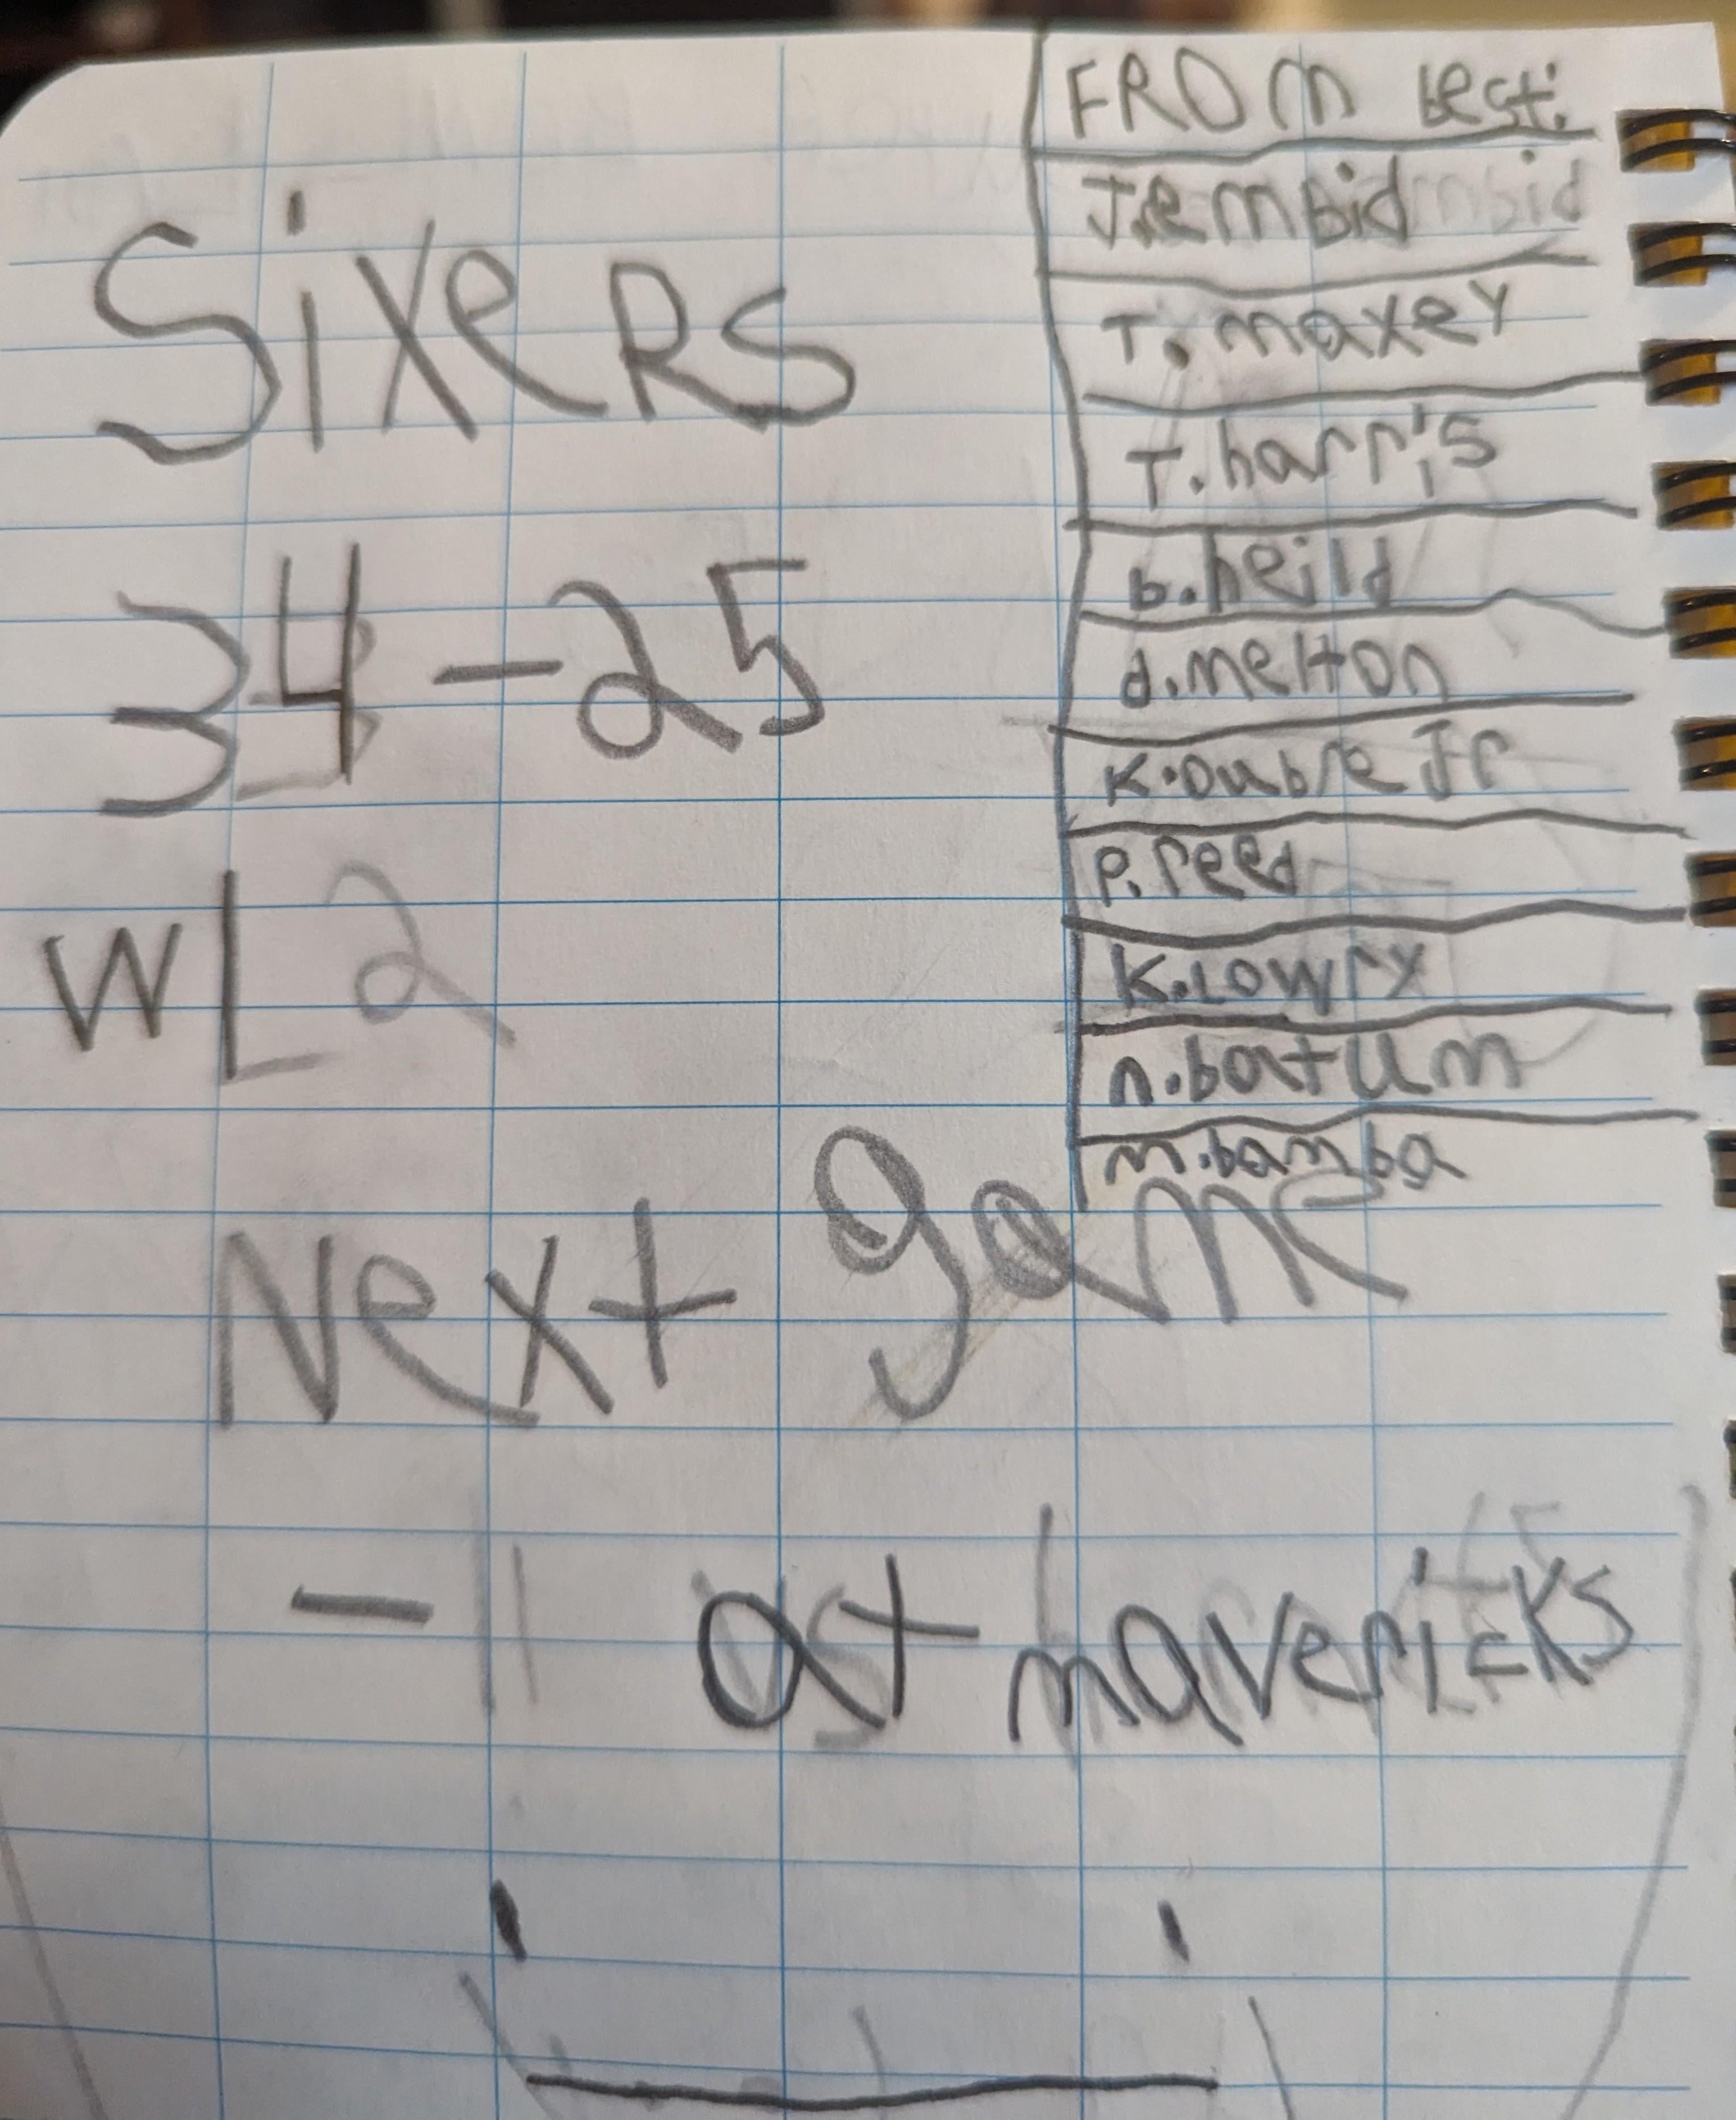 Sixers
34-25
WL2
Next game
- at mavericks
FROM best:
J.embid
T.maxey
T.harris
b.heild
d.melton
K.oubre Jr
P.reed
K.Lowry
n.batum
m.bamba